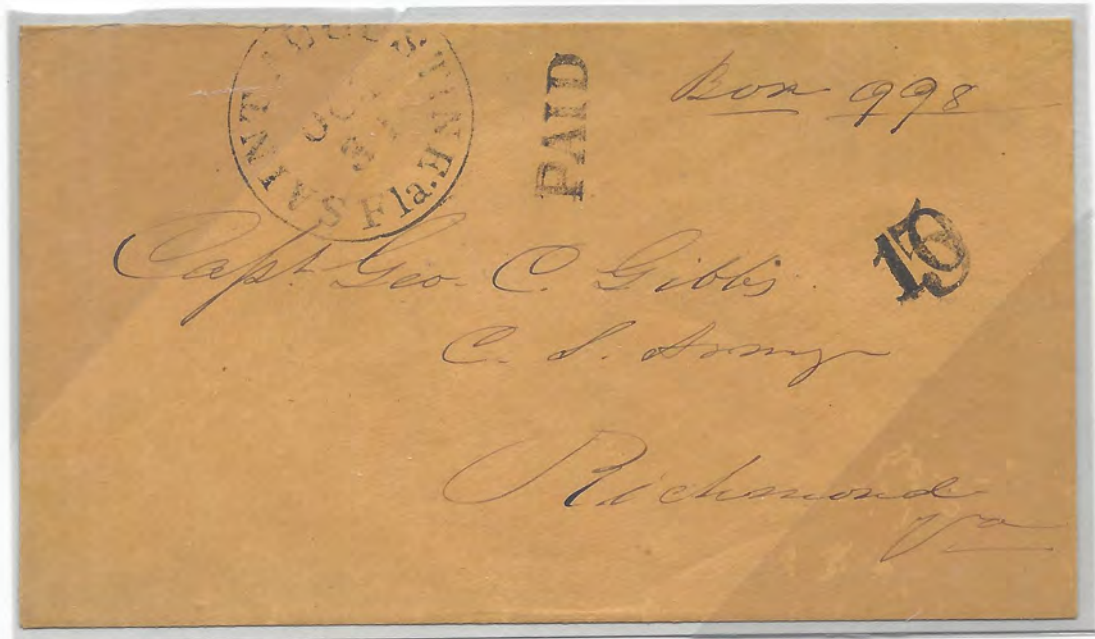 SAINT AUGUSTINE Fla.
OCT
31
PAID
Box 998
10
Capt. Geo. C. Gibbs
C. S. Army
Richmond
Va